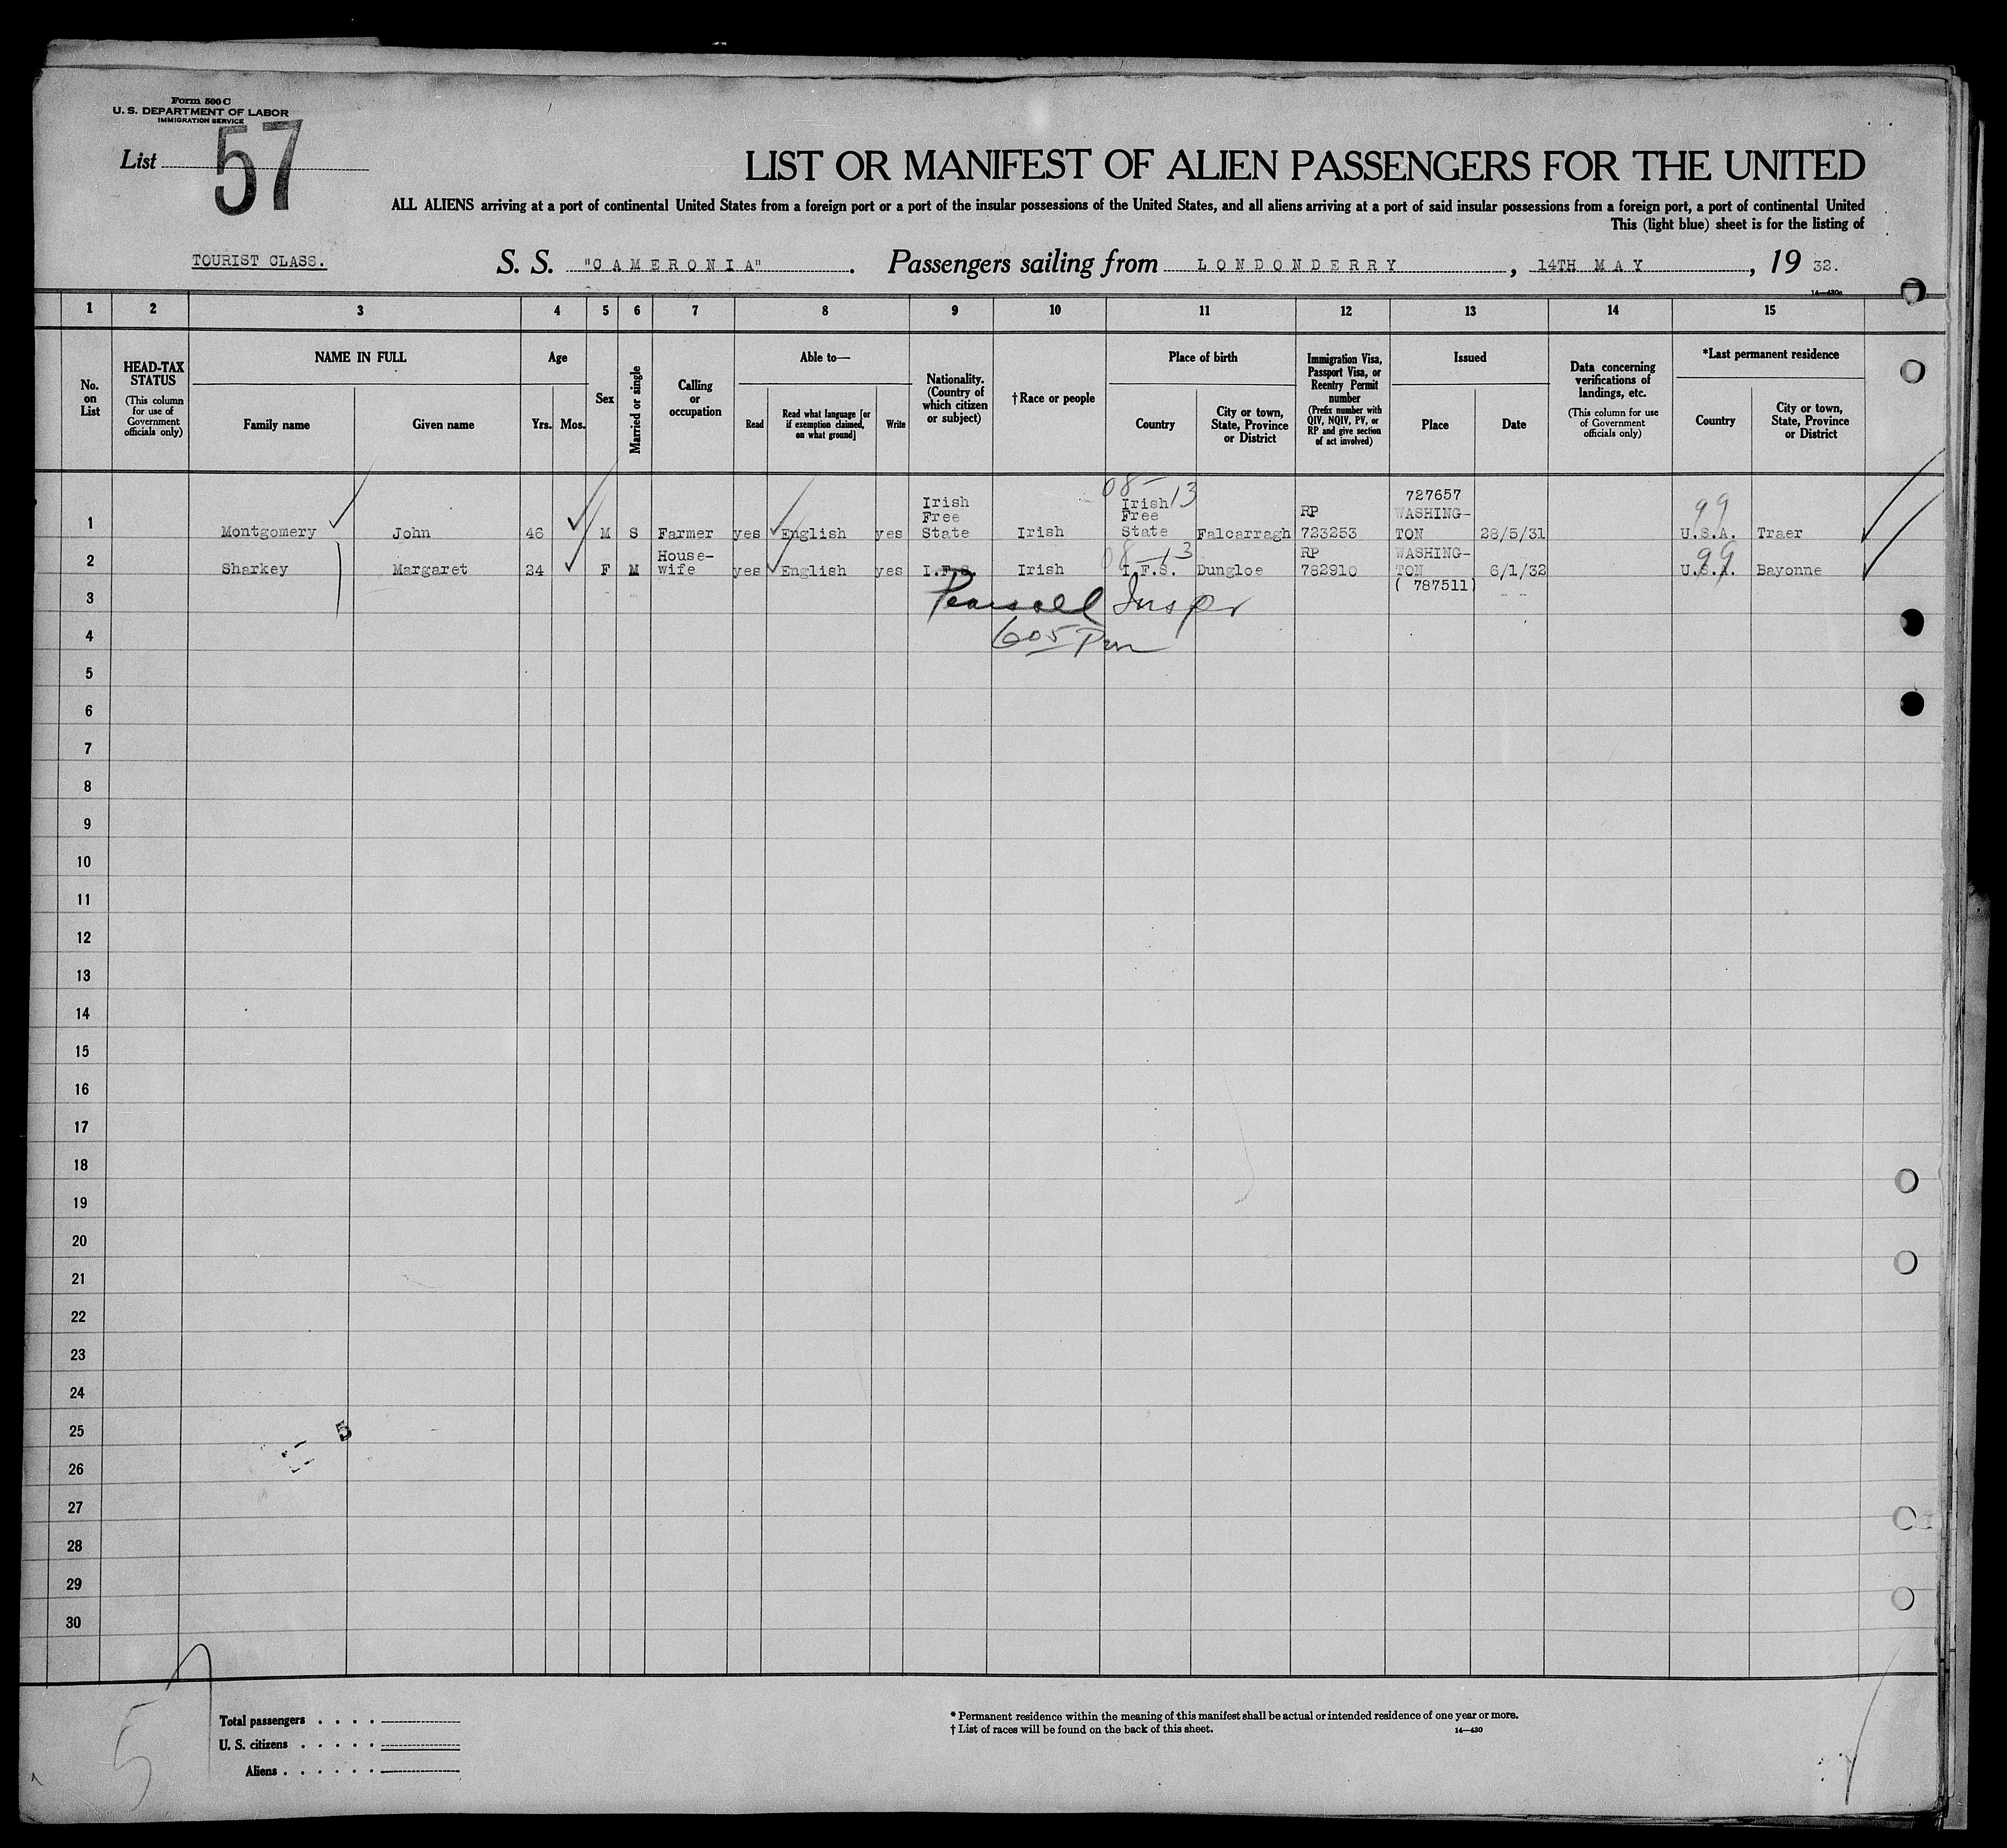 Form 500 C
U. S. DEPARTMENT OF LABOR
IMMIGRATION SERVICE
List 57
LIST OR MANIFEST OF ALIEN PASSENGERS FOR THE UNITED
ALL ALIENS arriving at a port of continental United States from a foreign port or a port of the insular possessions of the United States, and all aliens arriving at a port of said insular possessions from a foreign port, a port of continental United
This (light blue) sheet is for the listing of
TOURIST CLASS. S. S. "CAMERONIA". Passengers sailing from LONDONDERRY, 14TH MAY, 19 32.
14—430a
1 2 3 4 5 6 7 8 9 10 11 12 13 14 15
No. on List
HEAD-TAX STATUS
(This column for use of Government officials only)
NAME IN FULL
Family name
Given name
Age
Yrs.
Mos.
Sex
Married or single
Calling or occupation
Able to—
Read
Read what language [or if exemption claimed, on what ground]
Write
Nationality. (Country of which citizen or subject)
† Race or people
Place of birth
Country
City or town, State, Province or District
Immigration Visa, Passport Visa, or Reentry Permit number
(Prefix number with QIV, NQIV, PV, or RP and give section of act involved)
Issued
Place
Date
Data concerning verifications of landings, etc.
(This column for use of Government officials only)
*Last permanent residence
Country
City or town, State, Province or District
1 Montgomery John 46 M S Farmer yes English yes Irish Free State Irish 08-13 Irish Free State Falcarragh RP 723253 727657 WASHING-TON 28/5/31 99 U.S.A. Traer
2 Sharkey Margaret 24 F M House-wife yes English yes I.F.S. Irish 08-13 I.F.S. Dungloe RP 782910 WASHING-TON 6/1/32 99 U.S.A. Bayonne
3 ( 787511)
Pearsall Inspr
4 605 Pm
5
6
7
8
9
10
11
12
13
14
15
16
17
18
19
20
21
22
23
24
25 5
26
27
28
29
30
5
Total passengers
U. S. citizens
Aliens
* Permanent residence within the meaning of this manifest shall be actual or intended residence of one year or more.
† List of races will be found on the back of this sheet. 14—430